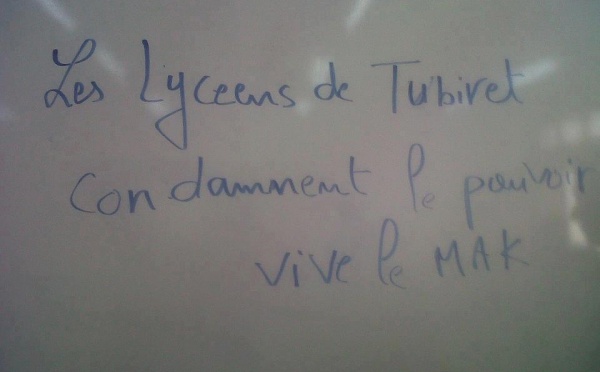 Les Lyceens de Tubiret
Condamnent le pouvoir
vive le MAK